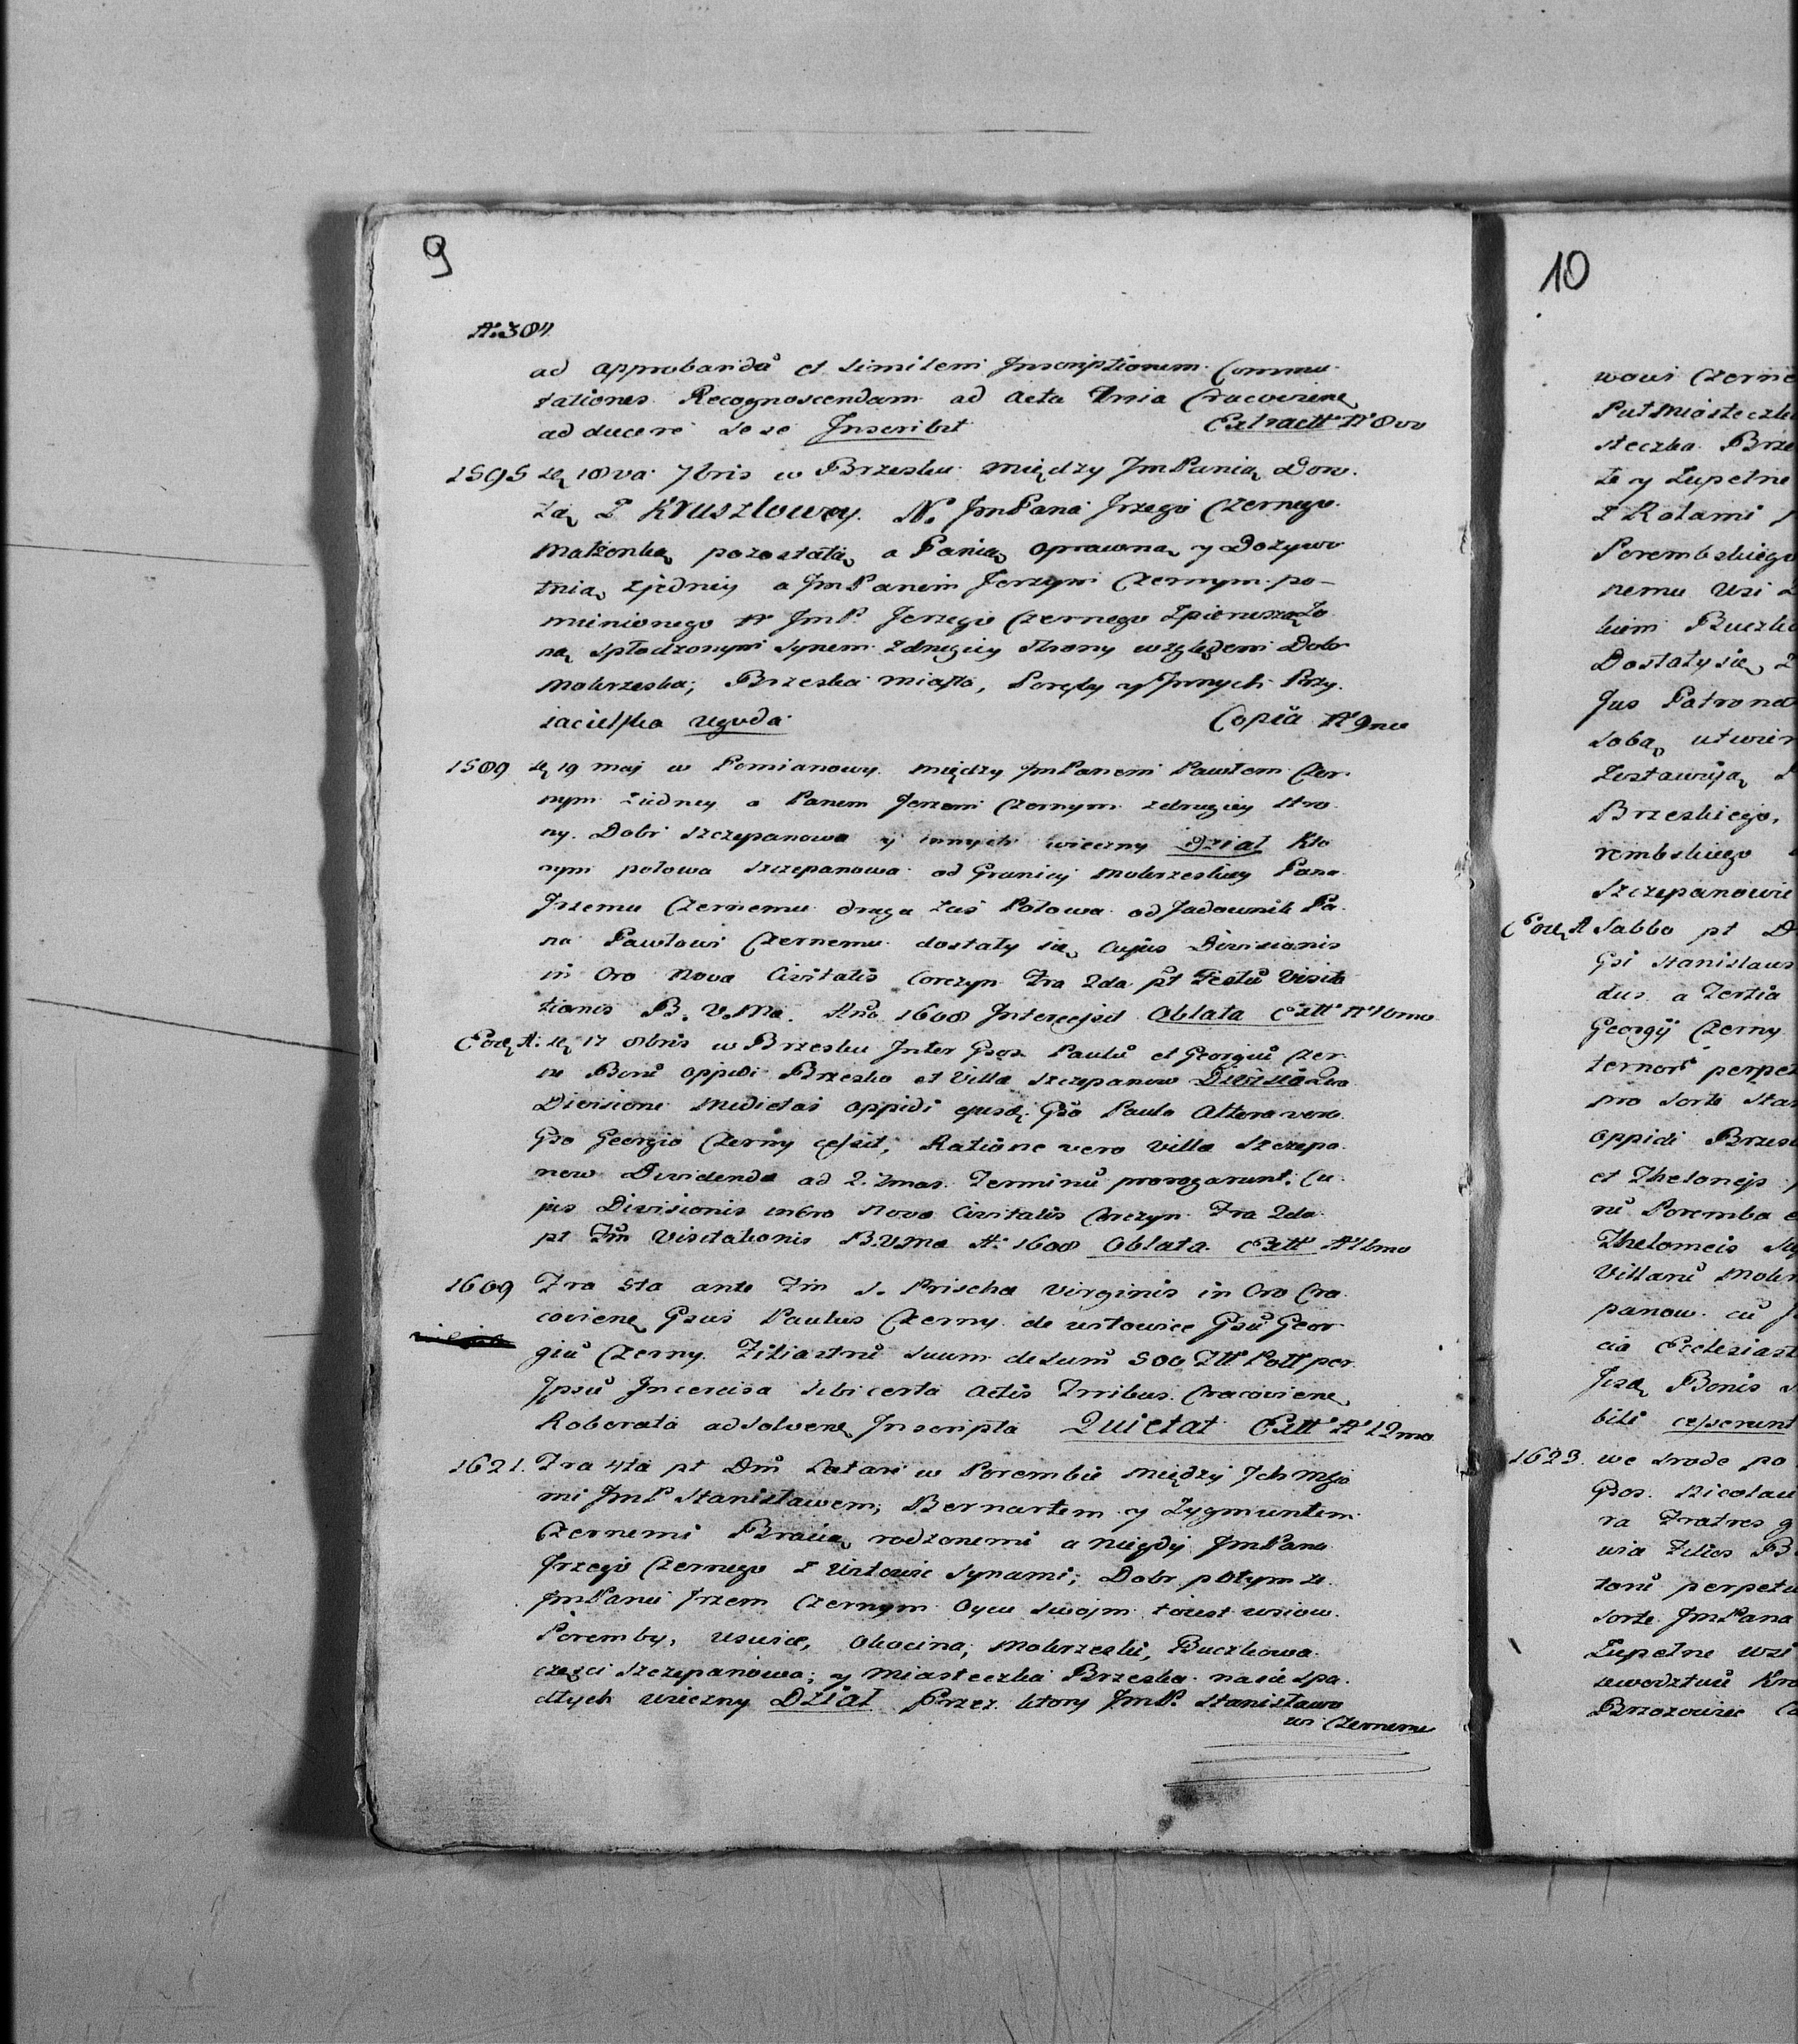 9
ad approbandū et similem Inscriptionum Commu-
tationes Recognoscendam ad Acta Tnia Cracoviene
ad ducere sese Inscribit Extractt N° 8vo
1595 18va 7bris w Brzesku między JmPanią Doro
tą Z Kruszlowey. N. JmPana Jrzego Czernego
Małżonką pozostałą a Panią oprawną y Dożywo
tnią zjedney a JmPanem Jerzym Czernym po-
mienionego N JmP. Jerzego Czernego Zpierwszą Żo
ną spłodzonym synem Zdrugiey strony względem Dobr
Mokrzeska; Brzeska miasta, Poręby y Innych Przy-
iacielska ugoda Copia N° 9no
19 maj w Pomianowy między JmPanem Pawłem Czer-
nym ziedney a Panem Jerzem Czernym zdrugiey stro
ny. Dobr Szczepanowa y innych wieczny Dział Kto
rym połowa Szczepanowa od Granicy Mokrzeskiey Panu
Jrzemu Czernemu druga zaś Połowa od Jadownik Pa
nu Pawłowi Czernemu dostały się, Cujus Divisionis
in Cro Nova Civitatis Corczyn Fra 2da pt Festū Visita
tionis B. V. Ma. Ano 1608 Intercessit Oblata Extt
17 8bris w Brzesku Inter Gsos Paulū et Georgiū Czer
ne Bonū oppidi Brzesko et Villa Szczepanow Divisio
Divisione Medietas oppidi ejusd. Gso Paulo Altera vero
Gso Georgio Czerny cessit, Ratione vero Villa Szczepa
now Dividenda ad 2. Terminū prorogarunt. Cu
jus Divisionis Nova Civitatis Corczyn Fra 2da
pt Fm Visitationis B.V.Ma A. 1608 Oblata. Extt
1609 Fra 5ta ante Fm S. Prisca Virginis in Cro Cra
coviene Gsus Paulus Czerny de Witowice Gsū Geor
giū Czerny Filiastrū suum de sumū 500 Ftt Pott per
Ipsū Sibi certa Actis Trribus Cracoviene
Roborata ad solvene Inscripta Quietat Extt N° 12mo
1621. Fra 4ta pt Dm Latare w Porembie między Ich
mi JmP Stanisławem, Bernartem y Zygmuntem
Czernemi Bracią rodzonemi a niegdy JmPana
Jrzego Czernego z Witowic synami; Dobr potym ze
JmPanu Jrzem Czernym oycu swojm
Poremby, Uswice, Okocina, Mokrzeski, Buczkowa
częsci Szczepanowa; y Miasteczka Brzeska na sie spa
dłych wieczny Dział Przez ktory JmP. Stanisławo
wi Czernemu
10
wowi Czerne
Puł Miasteczka
steczka Brze
te y Zupełne
z Rolami
Porembskiego
nemu Wsi
kiem Buczko
Dostały się,
Jus Patrona
sobą utwier
Zostawują
Brzeskiego,
rembskiego
Szczepanowie
Sabbo pt D
Gsi Stanislaus
dus a Tertia
Georgij Czerny
ternos perpet
pro sorte Stan
oppidi Brzes
et Theloneis
nū Poremba
Theloneis
Villarū Mokr
panow cū
cia Ecclesiast
Bonis
bili cesserunt
1623. we Srode po
Gsos. Nicolau
ra Fratres g
Filios B
torū perpetu
Sorte JmPana
Zupełne Wsi
iewodztwie Kra
Brzozowiec